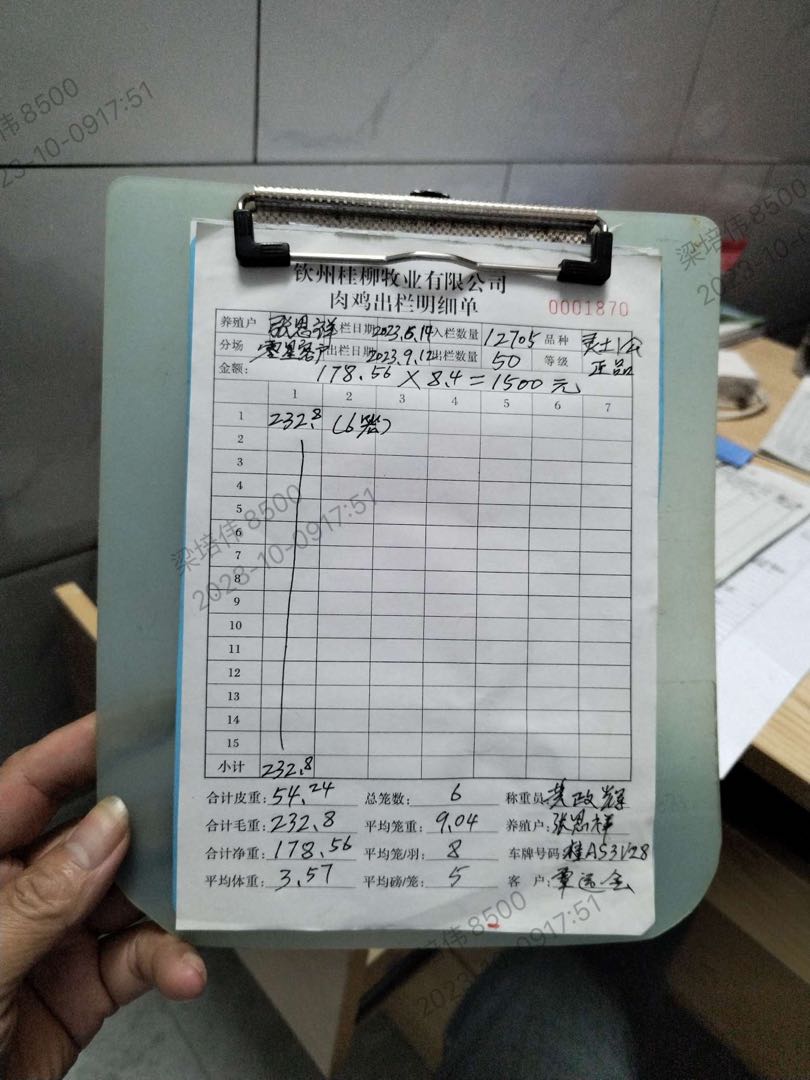 钦州桂柳牧业有限公司
肉鸡出栏明细单
0001870
养殖户 张恩祥 入栏日期 2023.5.14 入栏数量 12705 品种 灵土公
分场 零星客户 出栏日期 2023.9.12 出栏数量 50 等级 正品
金额: 178.56 × 8.4 = 1500元
1 2 3 4 5 6 7
1 232.8 (6笼)
2
3
4
5
6
7
8
9
10
11
12
13
14
15
小计 232.8
合计皮重: 54.24 总笼数: 6 称重员: 黄政辉
合计毛重: 232.8 平均笼重: 9.04 养殖户: 张恩祥
合计净重: 178.56 平均笼/羽: 8 车牌号码: 桂A53V28
平均体重: 3.57 平均磅/笼: 5 客 户: 覃运会
梁培伟 8500
2023-10-09 17:51
梁培伟 8500
2023-10-09 17:51
伟 8500
23-10-09 17:51
梁培伟 8500
2023-10-0